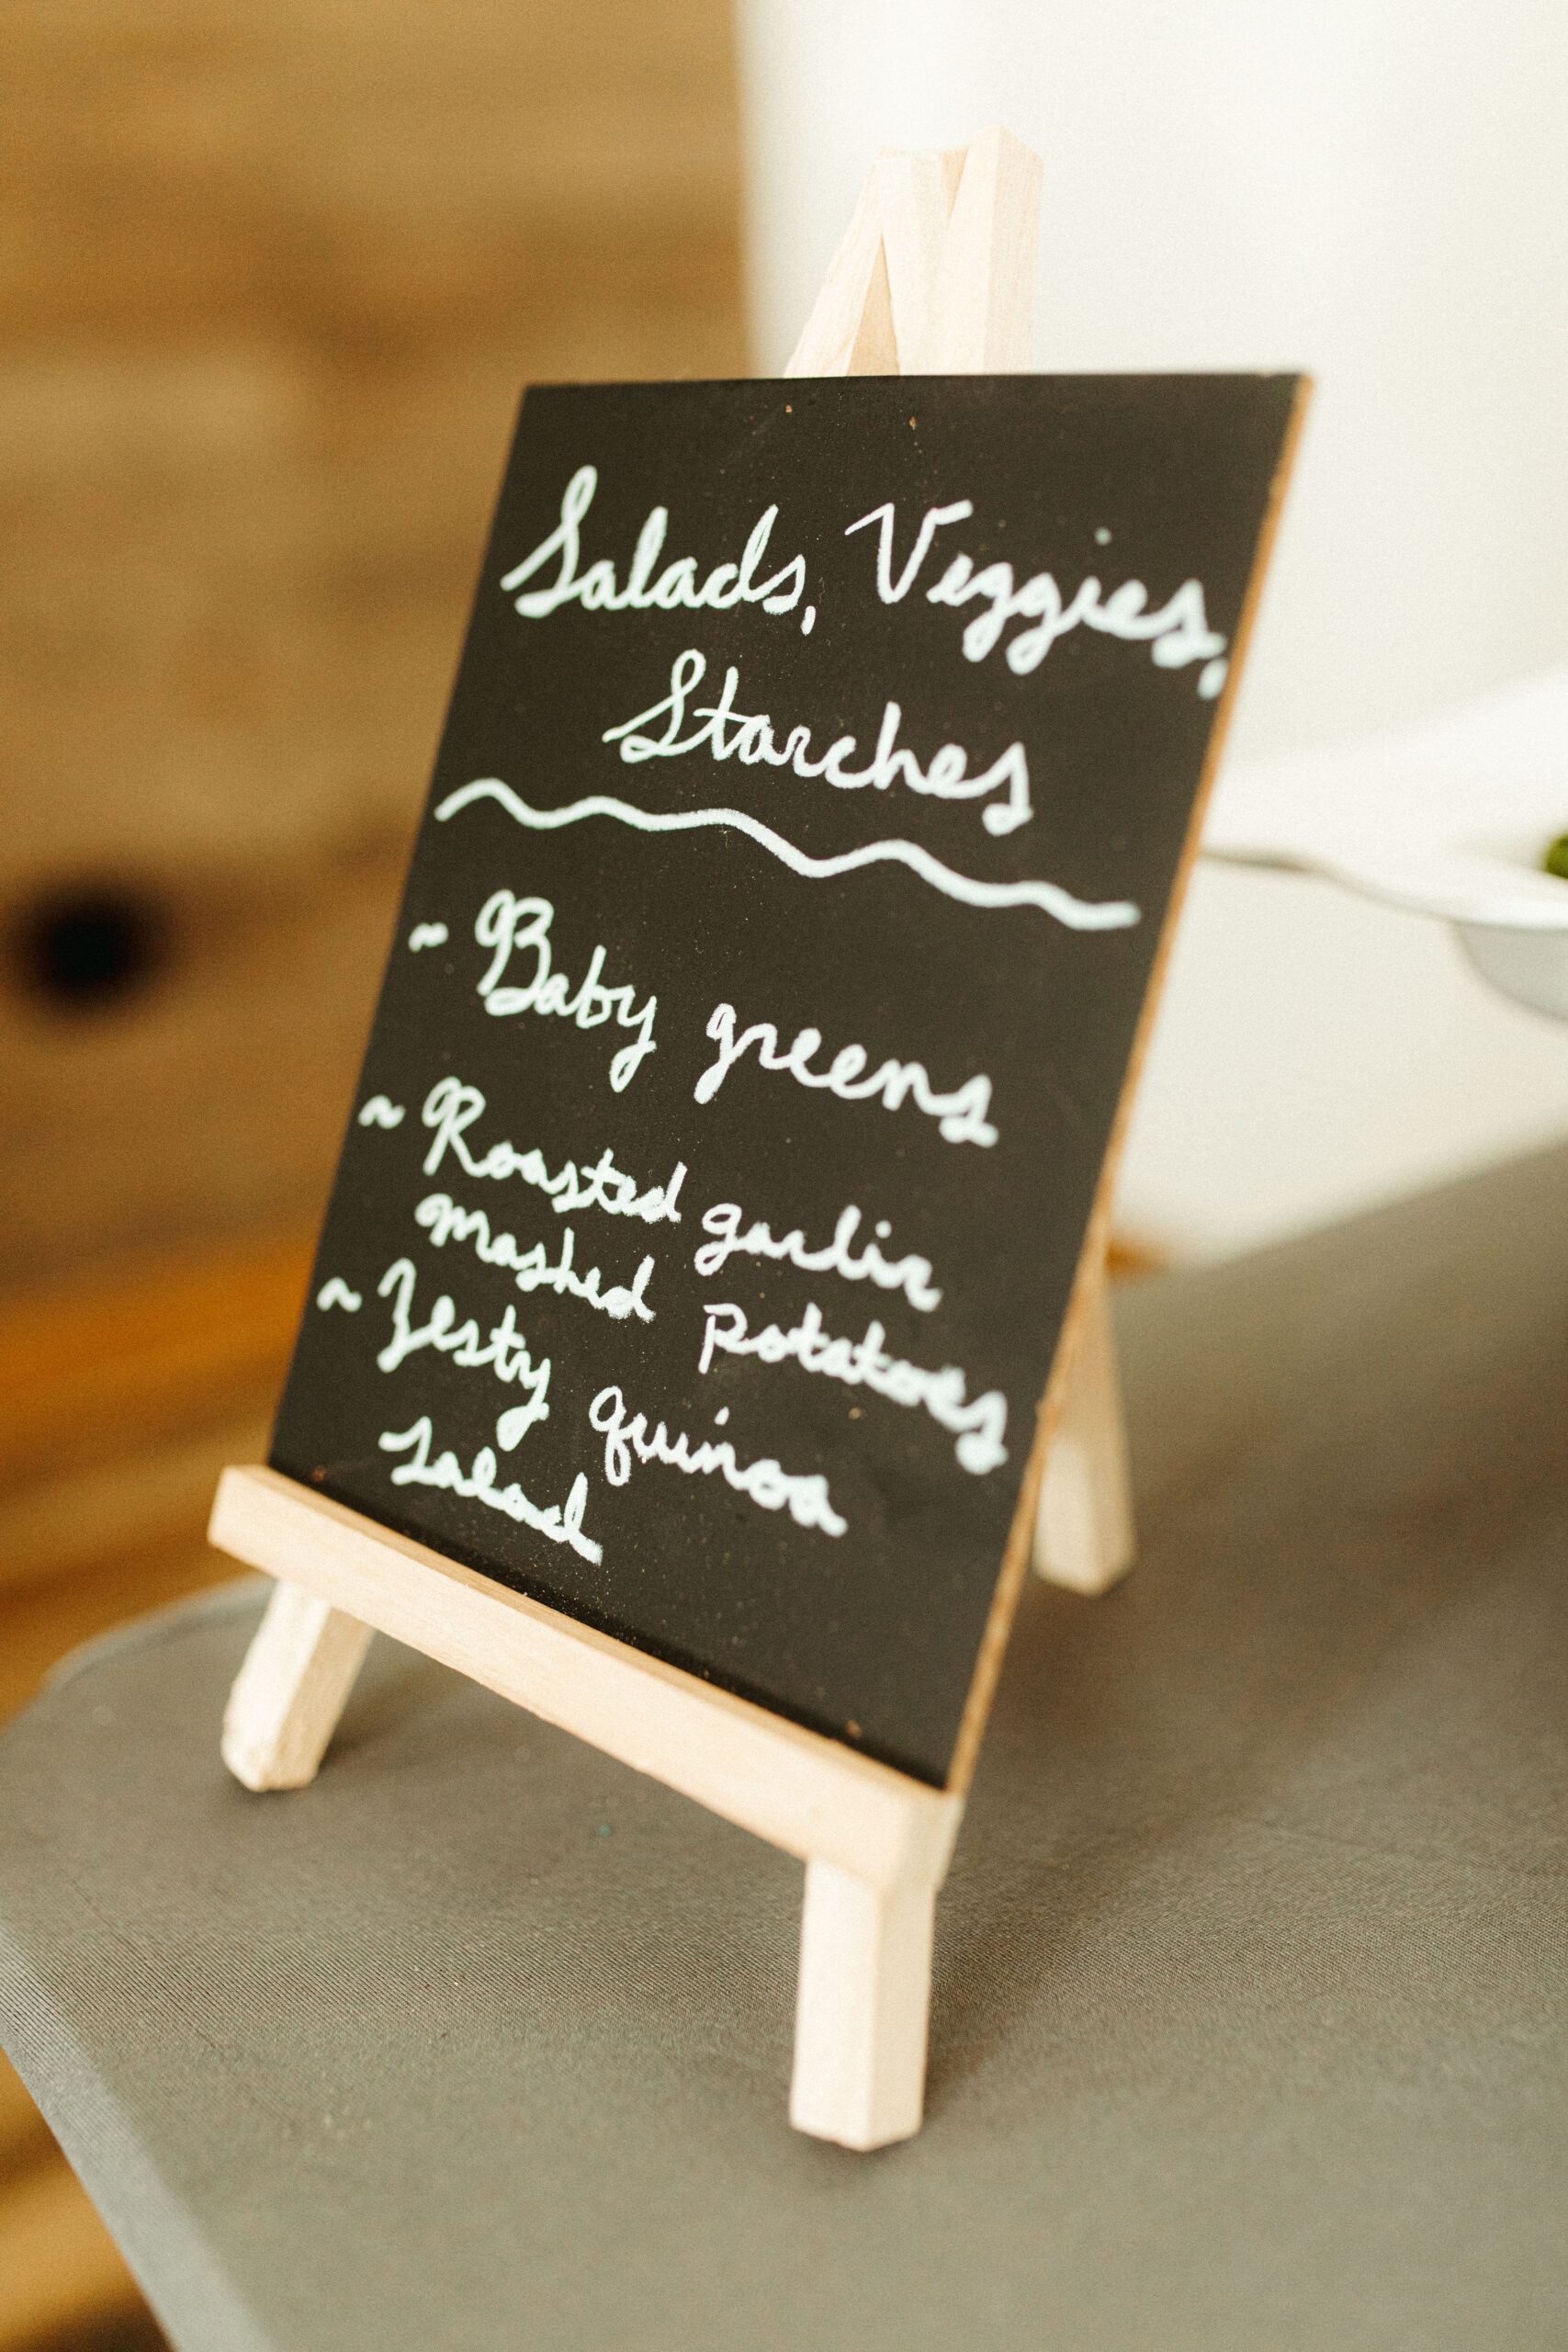 Salads, Veggies,
Starches
~ Baby greens
~ Roasted garlic
mashed potatoes
~ Zesty quinoa
Salad